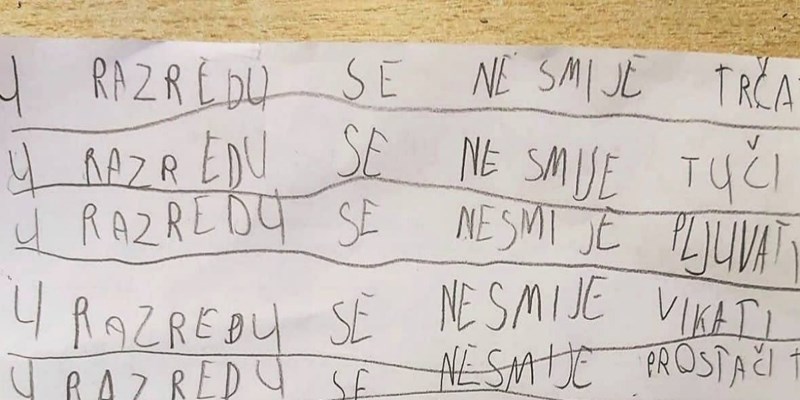 U RAZREDU SE NE SMIJE TRČA
U RAZREDU SE NE SMIJE TUČI
U RAZREDU SE NESMIJE PLJUVATI
U RAZREDU SE NESMIJE VIKATI
U RAZREDU SE NESMIJE PROSTAČIT